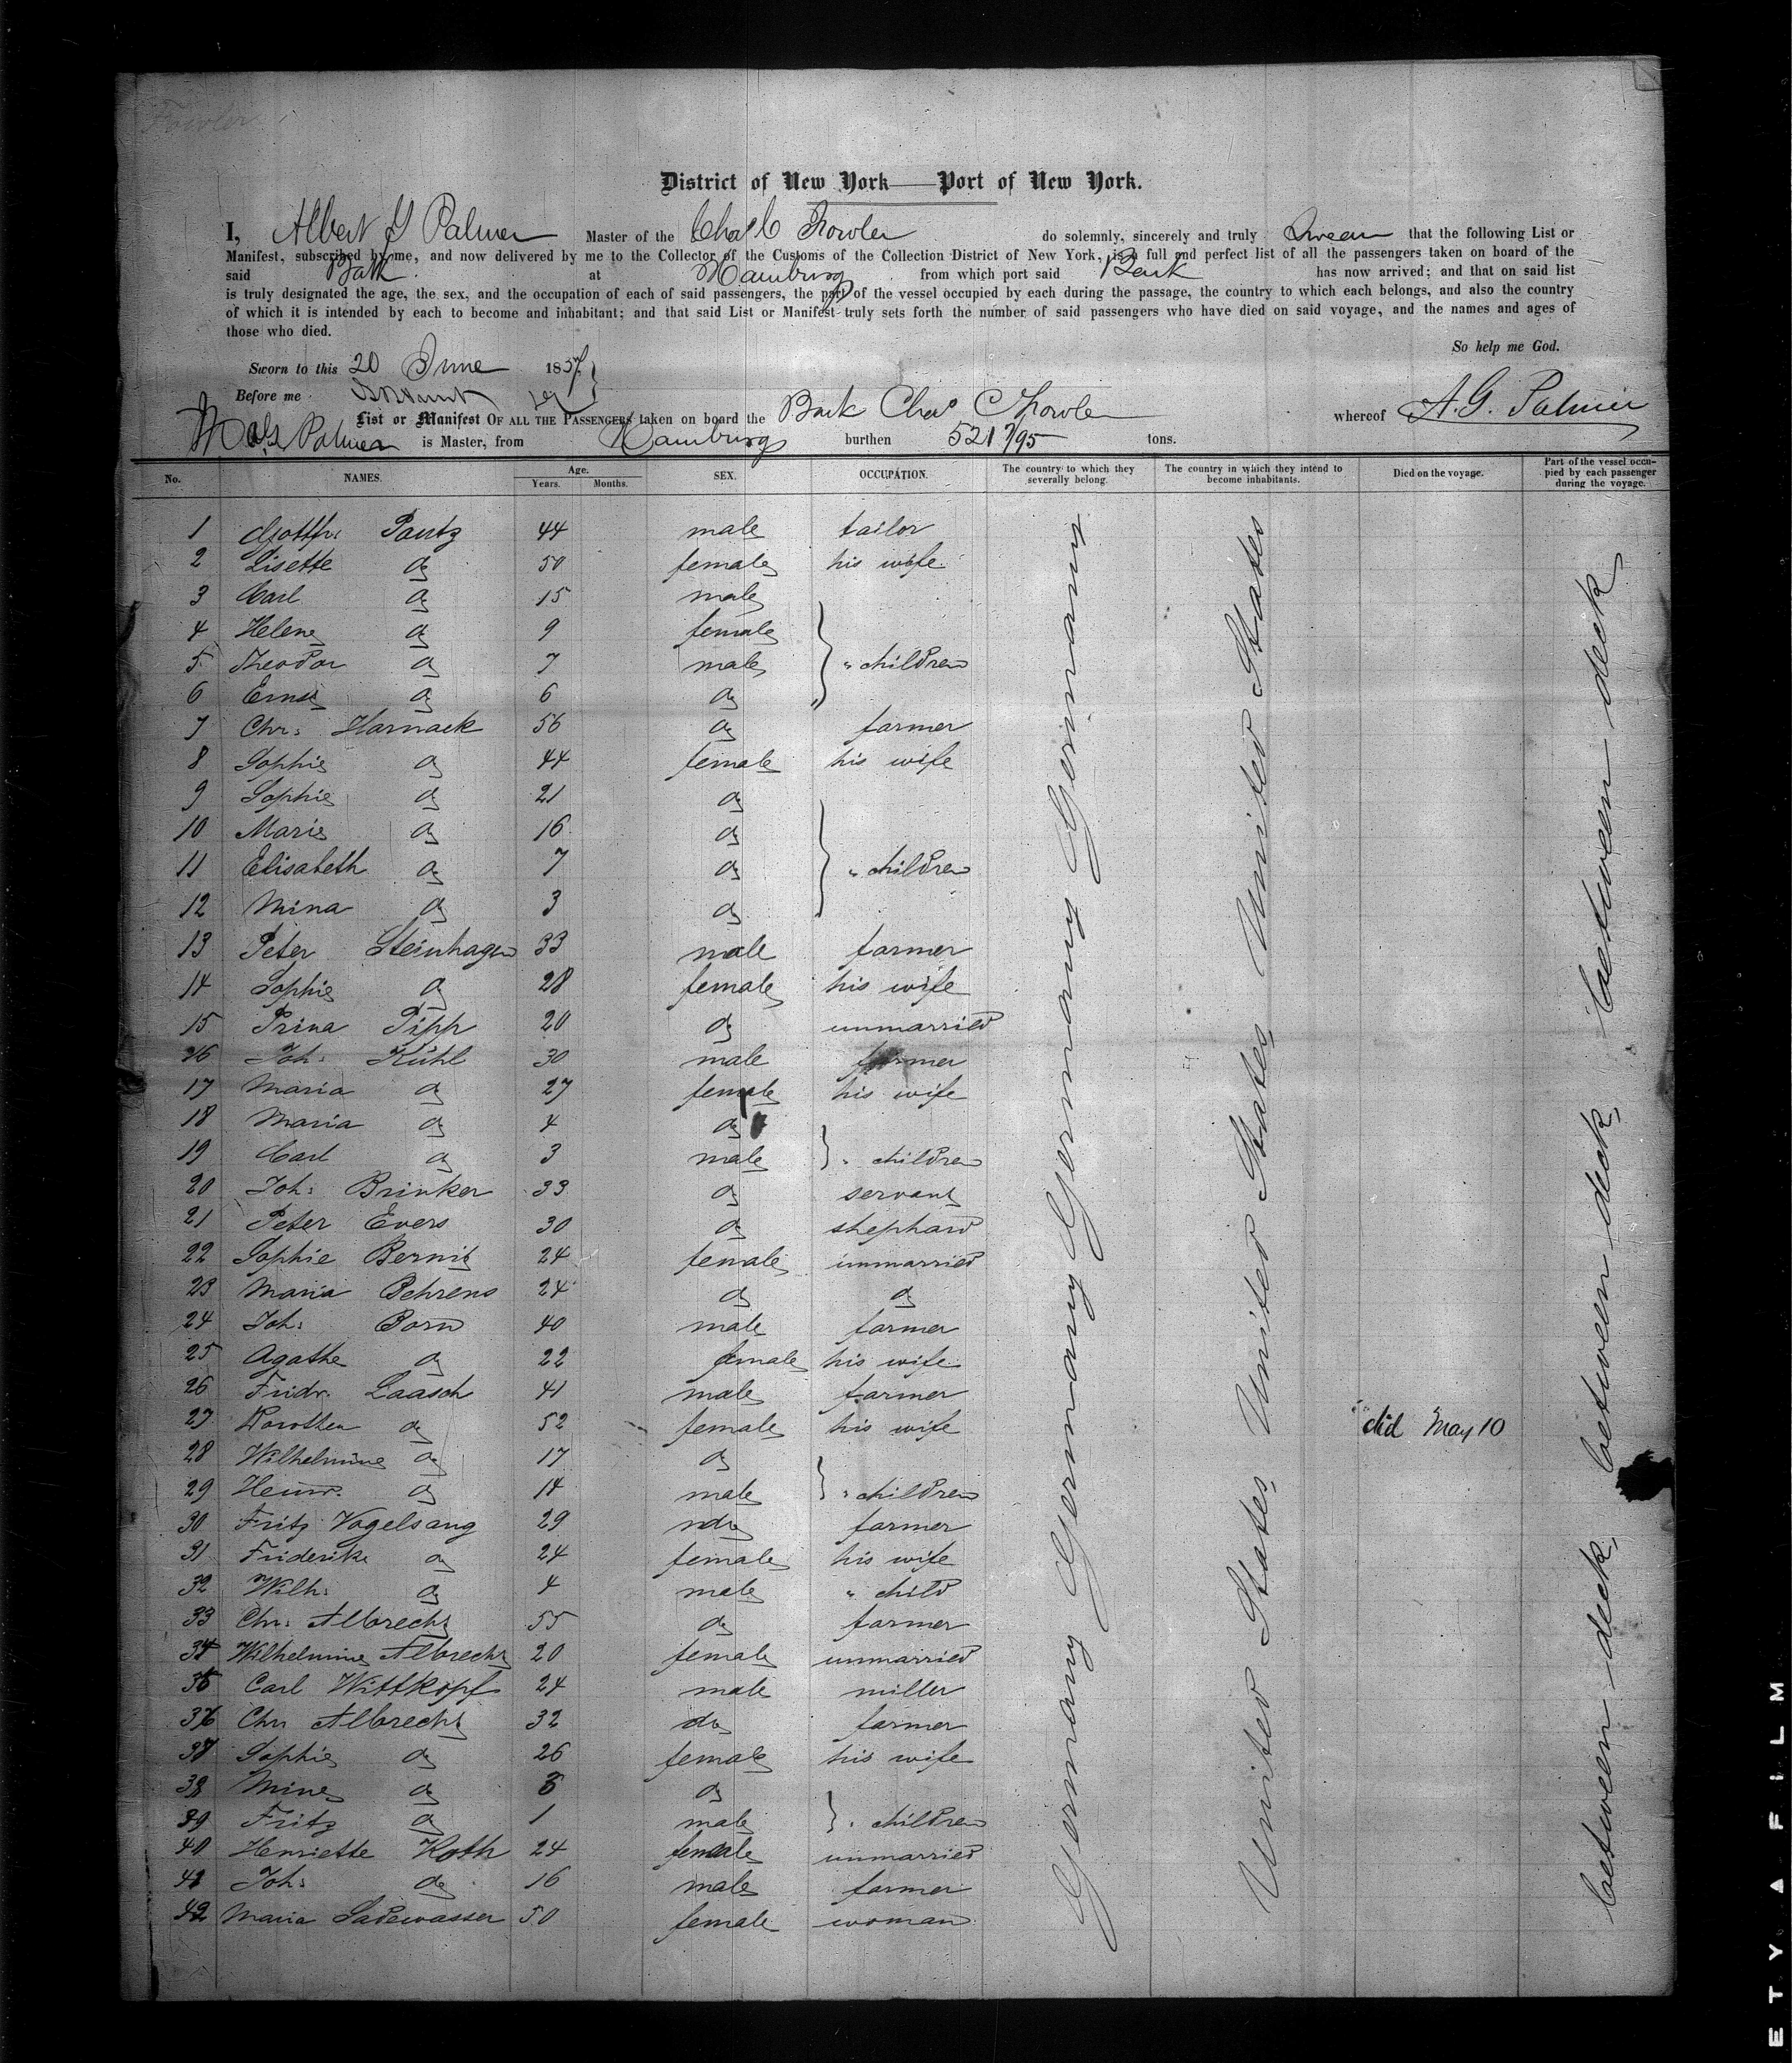 Fowler
District of New York — Port of New York.
I, Albert G Palmer Master of the Chas C Fowler do solemnly, sincerely and truly Swear that the following List or
Manifest, subscribed by me, and now delivered by me to the Collector of the Customs of the Collection District of New York, is a full and perfect list of all the passengers taken on board of the
said Bark at Hamburg from which port said Bark has now arrived; and that on said list
is truly designated the age, the sex, and the occupation of each of said passengers, the part of the vessel occupied by each during the passage, the country to which each belongs, and also the country
of which it is intended by each to become and inhabitant; and that said List or Manifest truly sets forth the number of said passengers who have died on said voyage, and the names and ages of
those who died.
So help me God.
Sworn to this 20 June 1857
Before me
A.G. Palmer
List or Manifest OF ALL THE PASSENGERS taken on board the Bark Chas C Fowler whereof
Palmer is Master, from Hamburg burthen 521 7/95 tons.
No. NAMES. Age. Years. Months. SEX. OCCUPATION. The country to which they severally belong. The country in which they intend to become inhabitants. Died on the voyage. Part of the vessel occupied by each passenger during the voyage.
1 Gottfr: Pautz 44 male tailor
2 Lisette do 50 female his wife
3 Carl do 15 male
4 Helene do 9 female
5 Theodor do 7 male " children
6 Ernst do 6 do
7 Chr: Harnack 56 do farmer
8 Sophie do 44 female his wife
9 Sophie do 21 do
10 Marie do 16 do
11 Elisabeth do 7 do " children
12 Mina do 3 do
13 Peter Steinhagen 33 male farmer
14 Sophie do 28 female his wife
15 Prina Pipp 20 do unmarried
16 Joh: Kühl 30 male farmer
17 Maria do 27 female his wife
18 Maria do 4 do
19 Carl do 3 male " children
20 Joh: Brinker 33 do servant
21 Peter Evers 30 do shephard
22 Sophie Bernit 24 female unmarried
23 Maria Behrens 24 do do
24 Joh: Born 40 male farmer
25 Agathe do 22 female his wife
26 Fridr. Laasch 41 male farmer
27 Dorothea do 52 female his wife did May 10
28 Wilhelmine do 17 do
29 Heinr. do 14 male " children
30 Fritz Vogelsang 29 do farmer
31 Friderike do 24 female his wife
32 Wilh: do 4 male " child
33 Chr: Albrecht 55 do farmer
34 Wilhelmine Albrecht 20 female unmarried
35 Carl Wittkopf 24 male miller
36 Chr Albrecht 32 do farmer
37 Sophie do 26 female his wife
38 Mine do do
39 Fritz do 1 male " children
40 Henriette Koth 24 female unmarried
41 Joh: do 16 male farmer
42 Maria Ladewasser 50 female woman
Germany Germany Germany Germany Germany
United States United States United States
between deck between deck between deck between deck
ETY A FILM